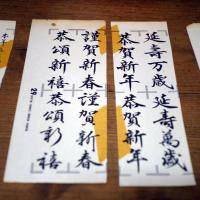 延壽万歳 延壽萬歳
恭賀新年 恭賀新年
謹賀新春 謹賀新春
恭頌新禧 恭頌新禧
29